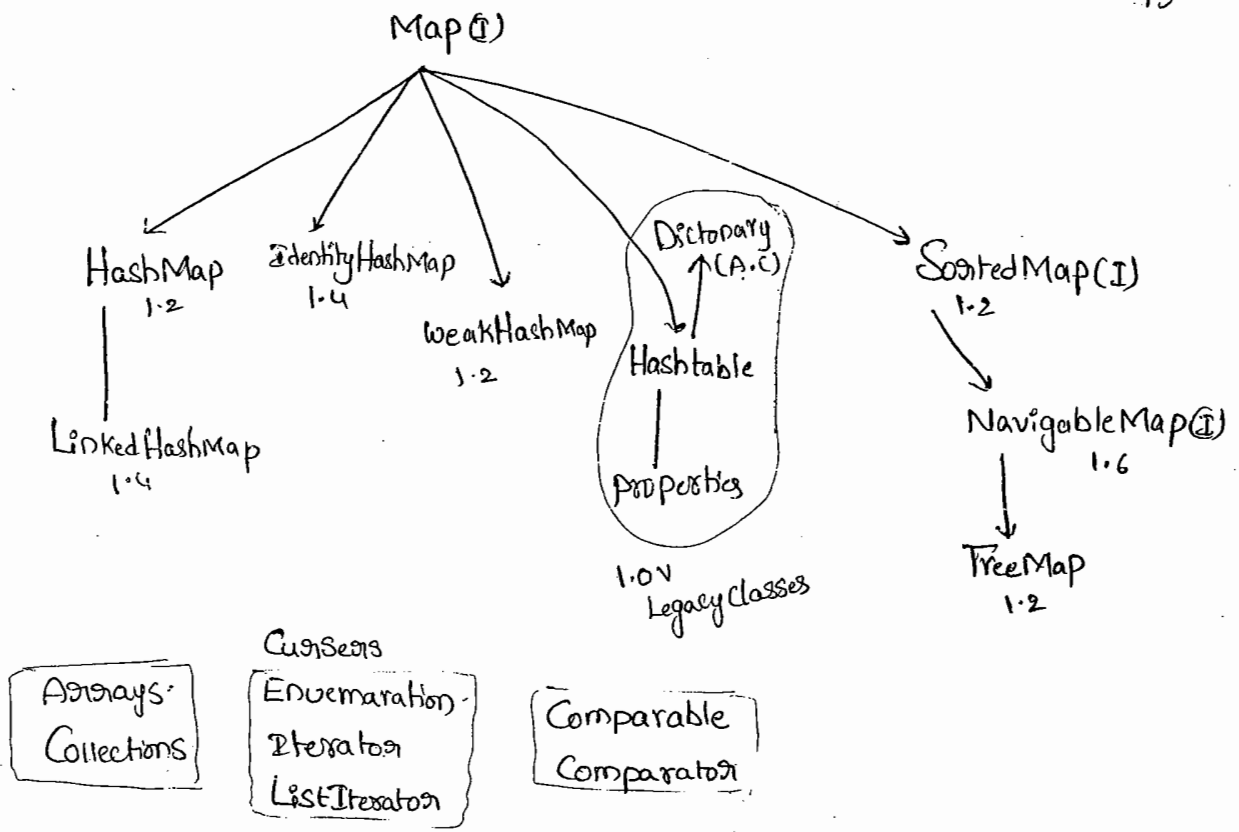 Map (I)
HashMap
1.2
IdentityHashMap
1.4
WeakHashMap
1.2
Dictonary
(A.C)
Hashtable
Properties
1.0V
Legacy Classes
SortedMap (I)
1.2
NavigableMap (I)
1.6
TreeMap
1.2
LinkedHashMap
1.4
Arrays
Collections
Cursers
Enuemaration
Iterator
ListIterator
Comparable
Comparator